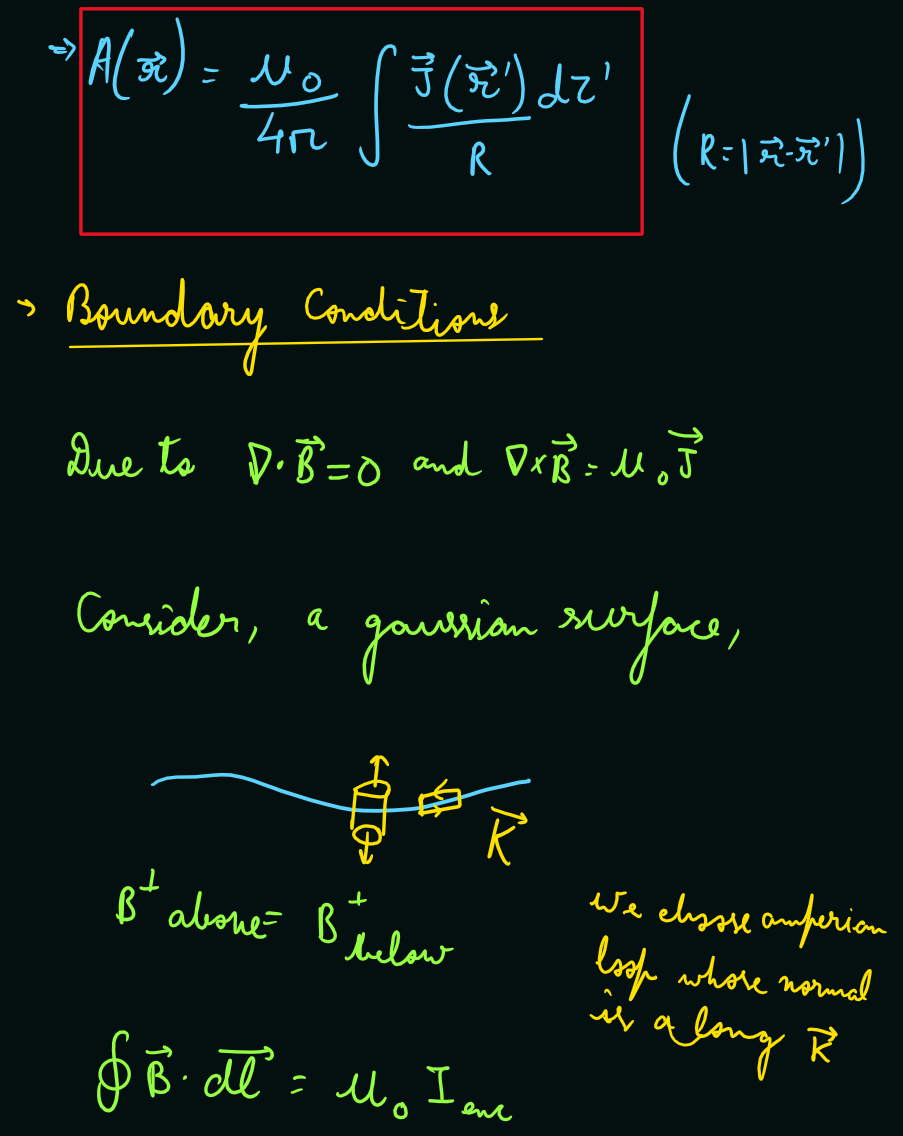 ⇒ A(r⃗) = μ₀/4π ∫ J⃗(r⃗')dτ'/R (R=|r⃗-r⃗'|)
→ Boundary Conditions
Due to ∇·B⃗=0 and ∇×B⃗=μ₀J⃗
Consider, a gaussian surface,
K⃗
B^⊥ above= B^⊥ below
We choose amperian
loop whose normal
is along K⃗
∮B⃗·dl⃗ = μ₀ I enc